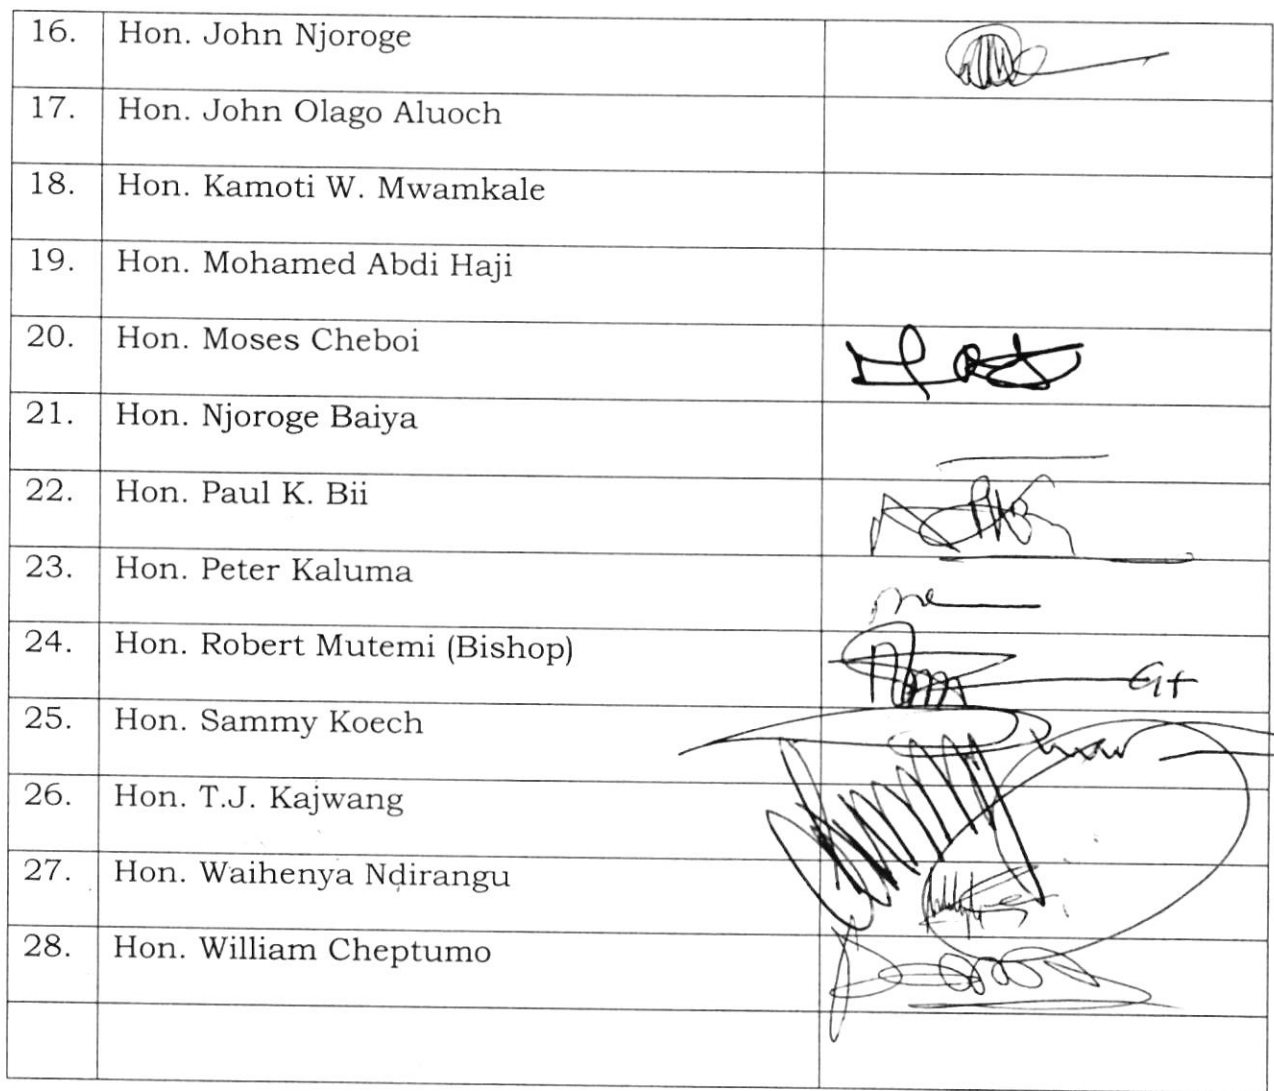 16. Hon. John Njoroge
17. Hon. John Olago Aluoch
18. Hon. Kamoti W. Mwamkale
19. Hon. Mohamed Abdi Haji
20. Hon. Moses Cheboi
21. Hon. Njoroge Baiya
22. Hon. Paul K. Bii
23. Hon. Peter Kaluma
24. Hon. Robert Mutemi (Bishop)
25. Hon. Sammy Koech
26. Hon. T.J. Kajwang
27. Hon. Waihenya Ndirangu
28. Hon. William Cheptumo